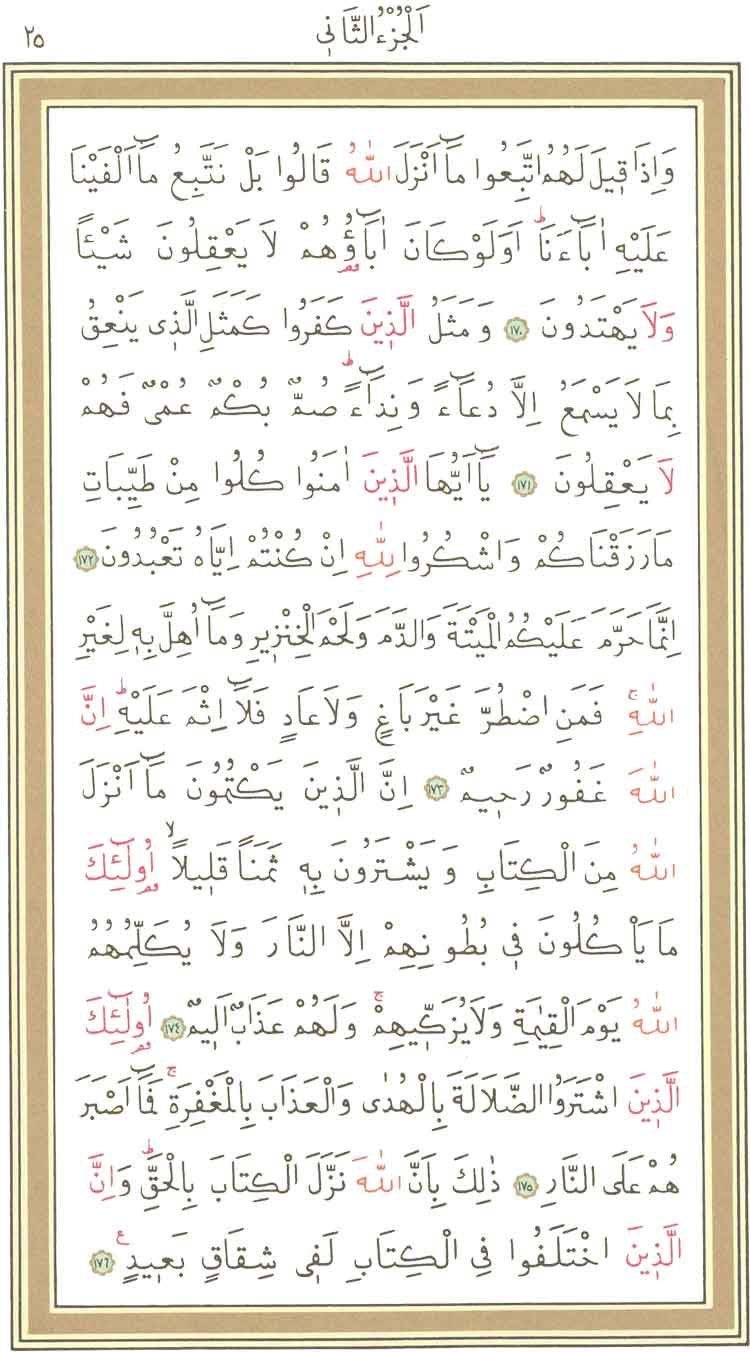 اَلْجُزْءُ الثَّانٖي
٢٥
وَاِذَا قٖيلَ لَهُمُ اتَّبِعُوا مَٓا اَنْزَلَ اللّٰهُ قَالُوا بَلْ نَتَّبِعُ مَٓا اَلْفَيْنَا
عَلَيْهِ اٰبَٓاءَنَاؕ اَوَلَوْ كَانَ اٰبَٓاؤُهُمْ لَا يَعْقِلُونَ شَيْـًٔا
وَلَا يَهْتَدُونَ ١٧٠ وَمَثَلُ الَّذٖينَ كَفَرُوا كَمَثَلِ الَّذٖي يَنْعِقُ
بِمَا لَا يَسْمَعُ اِلَّا دُعَٓاءً وَنِدَٓاءًؕ صُمٌّ بُكْمٌ عُمْيٌ فَهُمْ
لَا يَعْقِلُونَ ١٧١ يَٓا اَيُّهَا الَّذٖينَ اٰمَنُوا كُلُوا مِنْ طَيِّبَاتِ
مَا رَزَقْنَاكُمْ وَاشْكُرُوا لِلّٰهِ اِنْ كُنْتُمْ اِيَّاهُ تَعْبُدُونَ ١٧٢
اِنَّمَا حَرَّمَ عَلَيْكُمُ الْمَيْتَةَ وَالدَّمَ وَلَحْمَ الْخِنْزٖيرِ وَمَٓا اُهِلَّ بِهٖ لِغَيْرِ
اللّٰهِۚ فَمَنِ اضْطُرَّ غَيْرَ بَاغٍ وَلَا عَادٍ فَلَٓا اِثْمَ عَلَيْهِؕ اِنَّ
اللّٰهَ غَفُورٌ رَحٖيمٌ ١٧٣ اِنَّ الَّذٖينَ يَكْتُمُونَ مَٓا اَنْزَلَ
اللّٰهُ مِنَ الْكِتَابِ وَيَشْتَرُونَ بِهٖ ثَمَنًا قَلٖيلًاۙ اُولٰٓئِكَ
مَا يَأْكُلُونَ فٖي بُطُونِهِمْ اِلَّا النَّارَ وَلَا يُكَلِّمُهُمُ
اللّٰهُ يَوْمَ الْقِيٰمَةِ وَلَا يُزَكّٖيهِمْۚ وَلَهُمْ عَذَابٌ اَلٖيمٌ ١٧٤ اُولٰٓئِكَ
الَّذٖينَ اشْتَرَوُا الضَّلَالَةَ بِالْهُدٰى وَالْعَذَابَ بِالْمَغْفِرَةِۚ فَمَٓا اَصْبَرَ
هُمْ عَلَى النَّارِ ١٧٥ ذٰلِكَ بِاَنَّ اللّٰهَ نَزَّلَ الْكِتَابَ بِالْحَقِّؕ وَاِنَّ
الَّذٖينَ اخْتَلَفُوا فِي الْكِتَابِ لَفٖي شِقَاقٍ بَعٖيدٍ ع ١٧٦